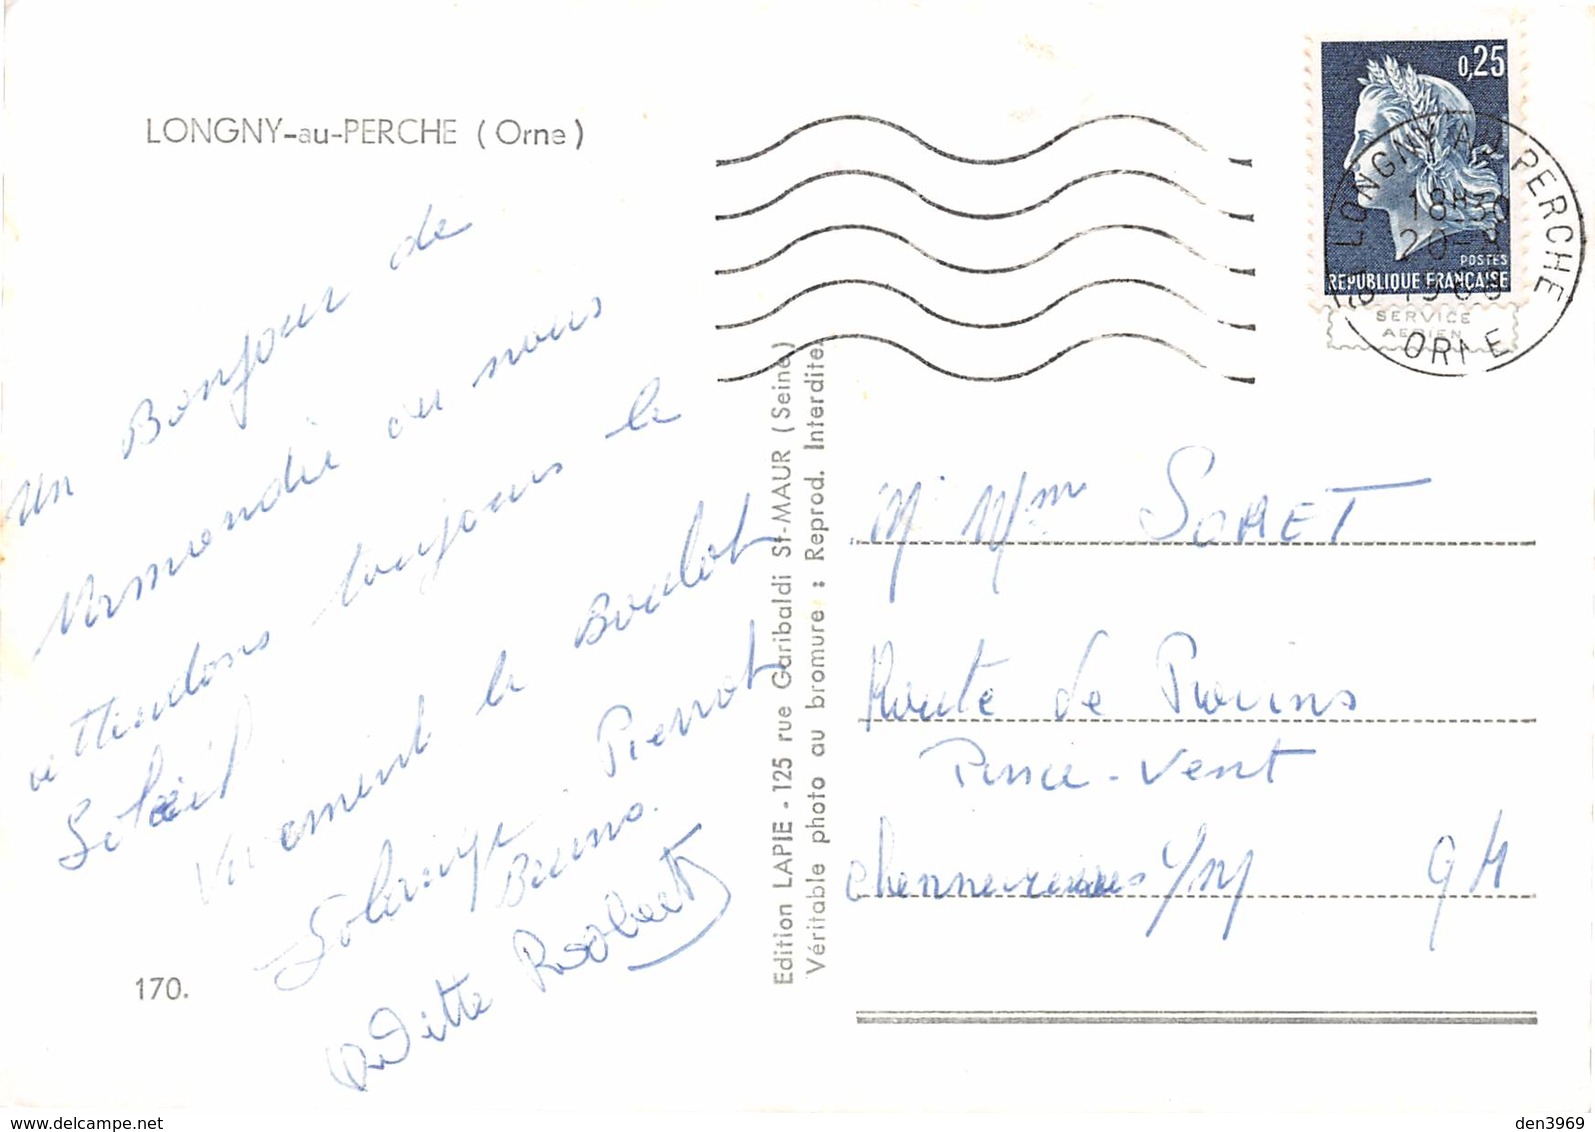 LONGNY-au-PERCHE (Orne)
Un Bonjour de
Normandie ou nous
attendons toujours le
Soleil
Vivement le Boulot
Solange Pierrot
Bruno.
Robert
170.
Edition LAPIE - 125 rue Garibaldi St-MAUR (Seine)
Véritable photo au bromure : Reprod. Interdite.
0,25
POSTES
REPUBLIQUE FRANÇAISE
LONGNY AU PERCHE
18H30
ORNE
SERVICE
AERIEN
M. Mme SORET
Route de Provins
Pince-Vent
Chennevieres s/M 94
den3969